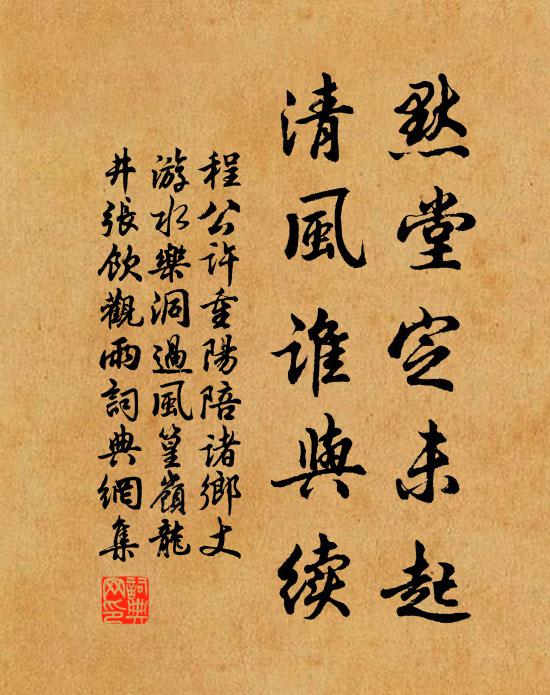 默堂定未起
清風誰與續
程公許重陽陪諸鄉丈
游水樂洞過風篁嶺龍
井張飲觀雨詞典網集
詞典網印